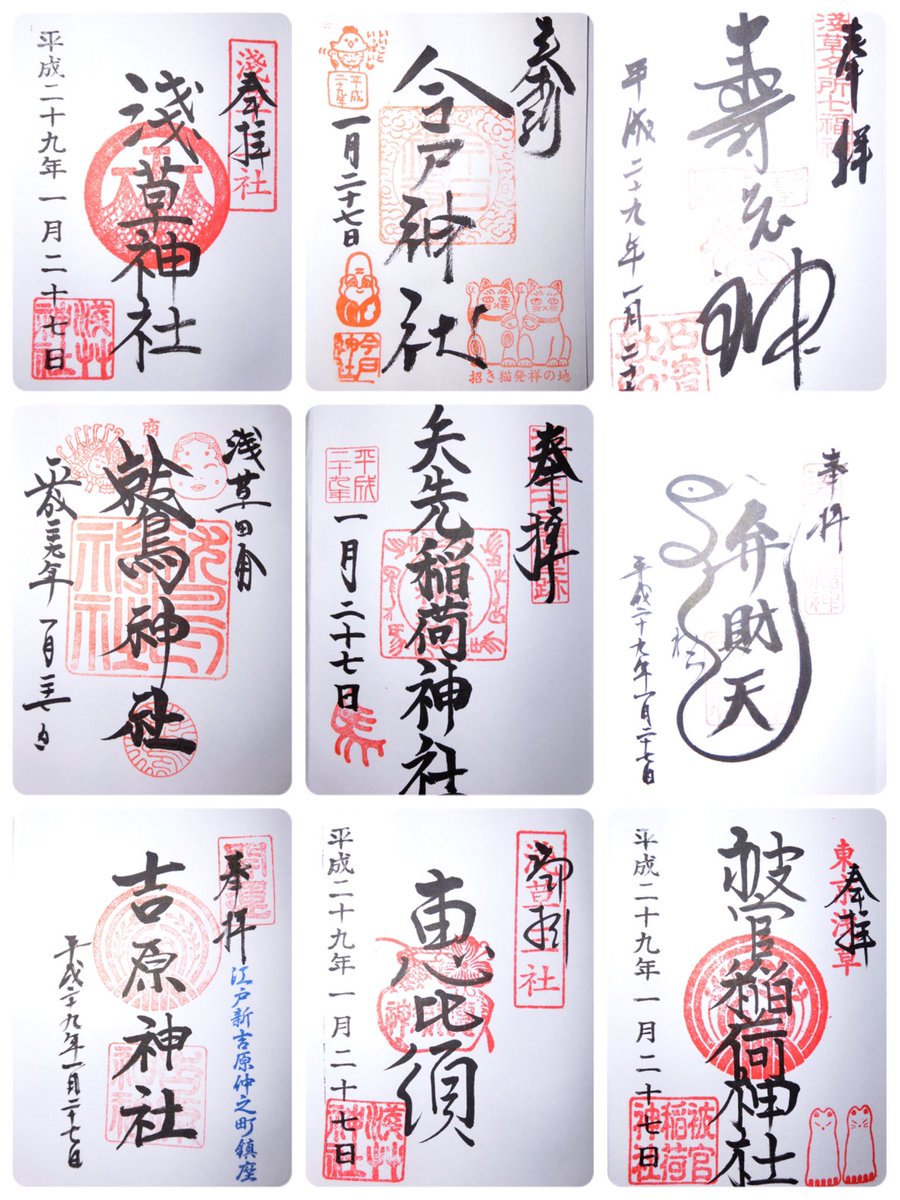 奉拝
淺草神社
浅草神社
平成二十九年一月二十七日
淺草神社
いいこと
いっぱい
平成
二十九年
今戸神社
一月二十七日
今戸
神社
招き猫発祥の地
奉拝
浅草名所七福神
寿老神
平成二十九年一月二十七
石濱
浅草田甫
鷲神社
商
奉拝
矢先稲荷神社
平成
二十九年
一月二十七日
奉拝
弁財天
平成二十九年一月二十七日
奉拝
吉原神社
江戸新吉原仲之町鎮座
平成二十九年一月二十七日
恵比須
平成二十九年一月二十七日
淺草神社
奉拝
東京浅草
被官稲荷神社
平成二十九年一月二十七日
被官
稲荷
神社